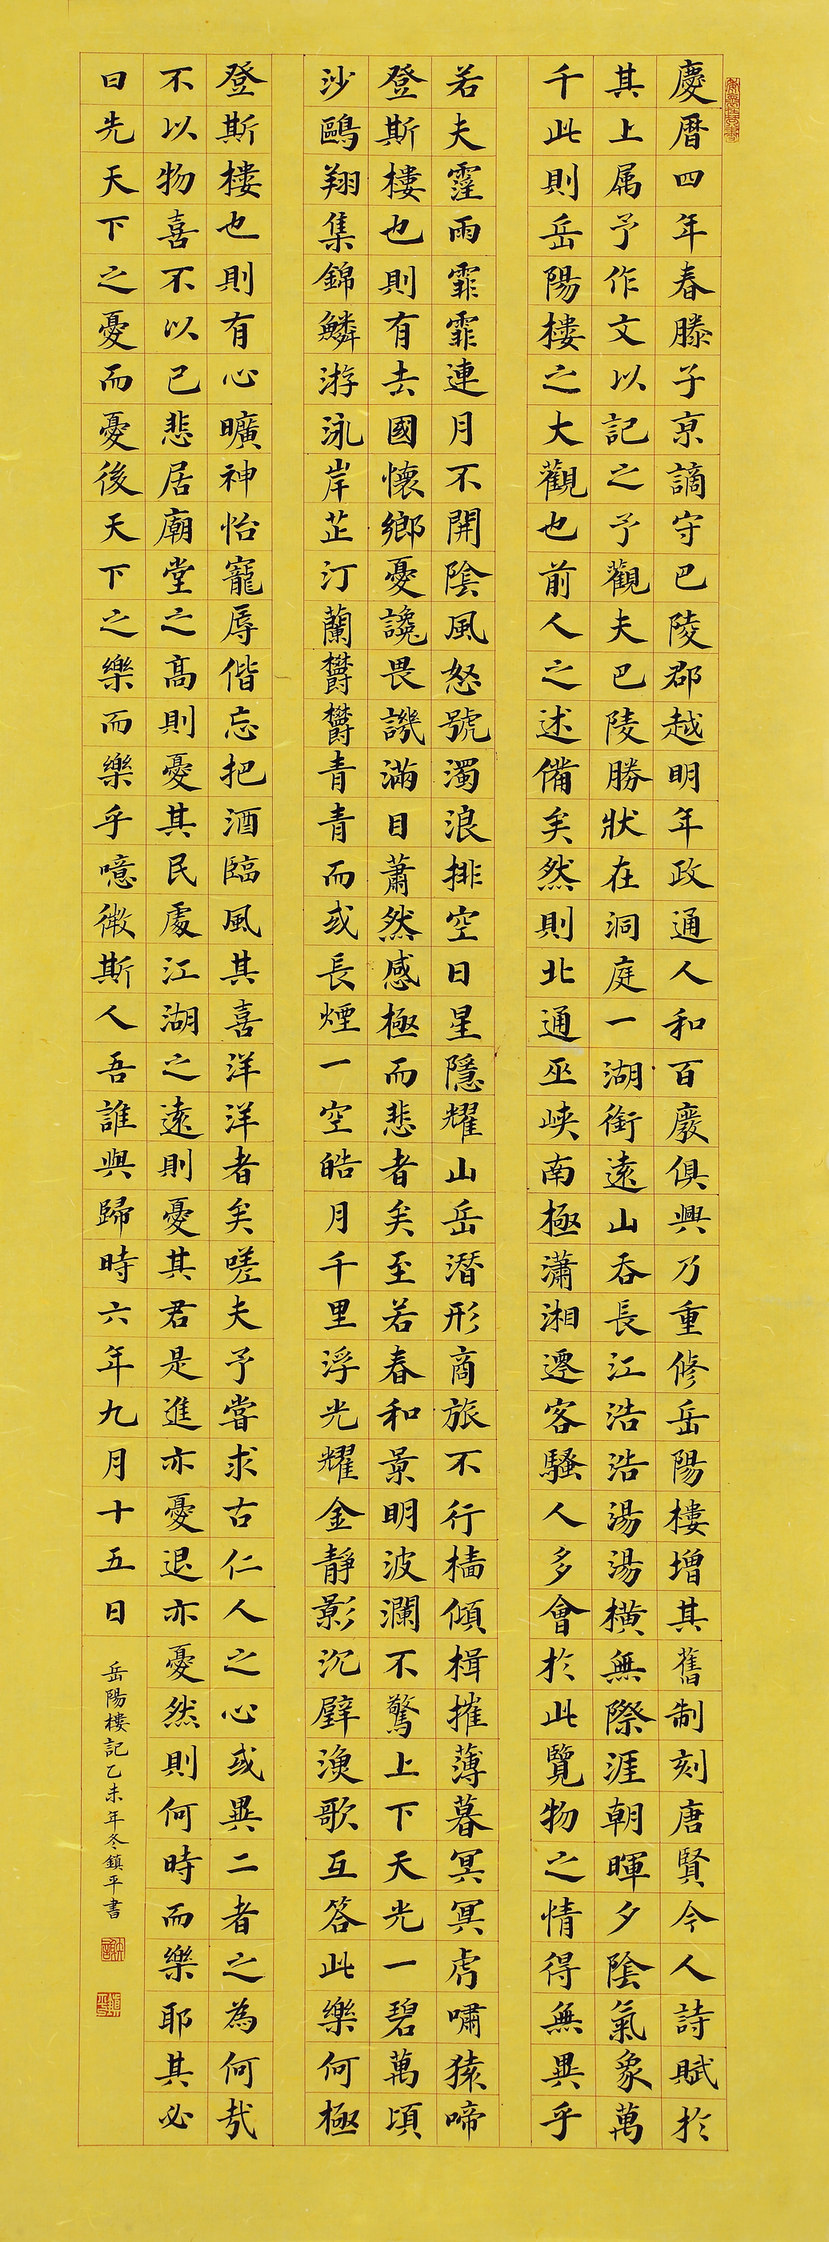 慶暦四年春滕子京謫守巴陵郡越明年政通人和百廢俱興乃重修岳陽樓增其舊制刻唐賢今人詩賦於
其上属予作文以記之予觀夫巴陵勝狀在洞庭一湖銜遠山吞長江浩浩湯湯橫無際涯朝暉夕陰氣象萬
千此則岳陽樓之大觀也前人之述備矣然則北通巫峽南極瀟湘遷客騷人多會於此覽物之情得無異乎
若夫霪雨霏霏連月不開陰風怒號濁浪排空日星隱耀山岳潛形商旅不行檣傾楫摧薄暮冥冥虎嘯猿啼
登斯樓也則有去國懷鄉憂讒畏譏滿目蕭然感極而悲者矣至若春和景明波瀾不驚上下天光一碧萬頃
沙鷗翔集錦鱗游泳岸芷汀蘭欝欝青青而或長煙一空皓月千里浮光耀金靜影沉璧漁歌互答此樂何極
登斯樓也則有心曠神怡寵辱偕忘把酒臨風其喜洋洋者矣嗟夫予嘗求古仁人之心或異二者之為何哉
不以物喜不以己悲居廟堂之高則憂其民處江湖之遠則憂其君是進亦憂退亦憂然則何時而樂耶其必
曰先天下之憂而憂後天下之樂而樂乎噫微斯人吾誰與歸時六年九月十五日
岳陽樓記乙未年冬鎮平書